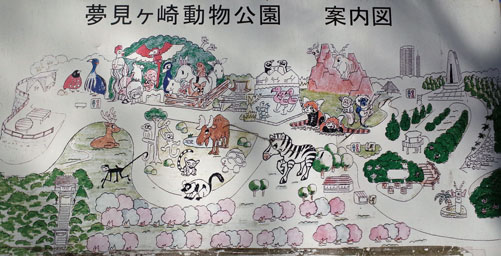 夢見ヶ崎動物公園 案内図